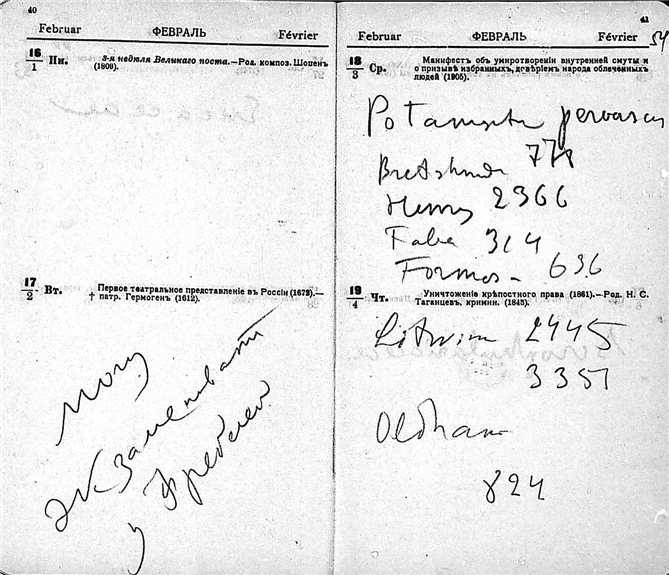 40
Februar ФЕВРАЛЬ Février
16/1 Пн. 3-я недѣля Великаго поста.—Род. композ. Шопенъ
(1809).
17/2 Вт. Первое театральное представленіе въ Россіи (1672).—
† патр. Гермогенъ (1612).
могу
экзаменовать
у Фребелей
41
Februar ФЕВРАЛЬ Février 54
18/3 Ср. Манифестъ объ умиротвореніи внутренней смуты и
о призывѣ избранныхъ, довѣріемъ народа облеченныхъ
людей (1905).
Potamogeton
77
Henry 2366
Faber 314
Formos- 636
19/4 Чт. Уничтоженіе крѣпостного права (1861).—Род. Н. С.
Таганцевъ, кримин. (1843).
Litwin 2445
3351
Oldham
824